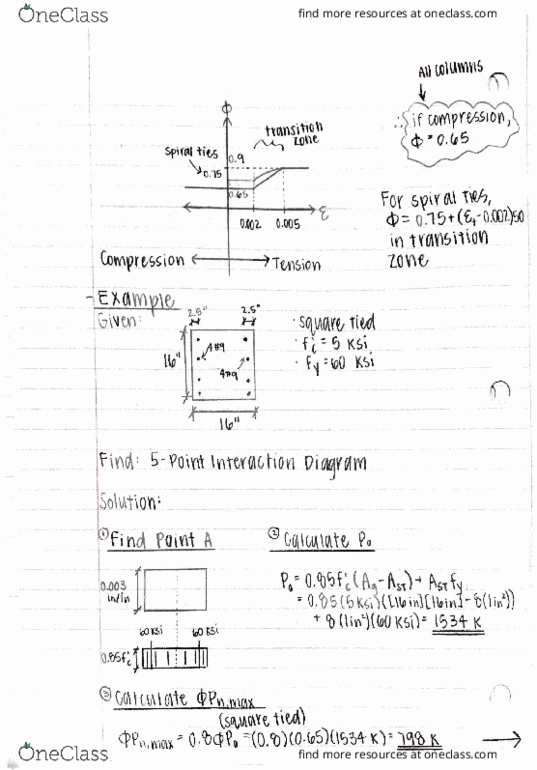 OneClass
find more resources at oneclass.com
All columns
∴ if compression,
ϕ = 0.65
ϕ
transition
zone
spiral ties
0.9
0.75
0.65
0.002 0.005 ε
Compression Tension
For spiral ties,
ϕ = 0.75+(εt-0.002)50
in transition
zone
- Example
Given:
2.5" 2.5"
4#9
4#9
16"
16"
· square tied
· f'c = 5 ksi
· fy = 60 ksi
Find: 5-Point Interaction Diagram
Solution:
① Find Point A
0.003
in/in
60 ksi 60 ksi
0.85f'c
② Calculate Po
Po = 0.85f'c (Ag - AST) + AST fy
= 0.85(5 ksi)([16in][16in] - 8(1in²))
+ 8(1in²)(60 ksi) = 1534 K
③ Calculate ϕPn,max
(square tied)
ϕPn,max = 0.8ϕPo = (0.8)(0.65)(1534 K) = 798 K
OneClass
find more resources at oneclass.com